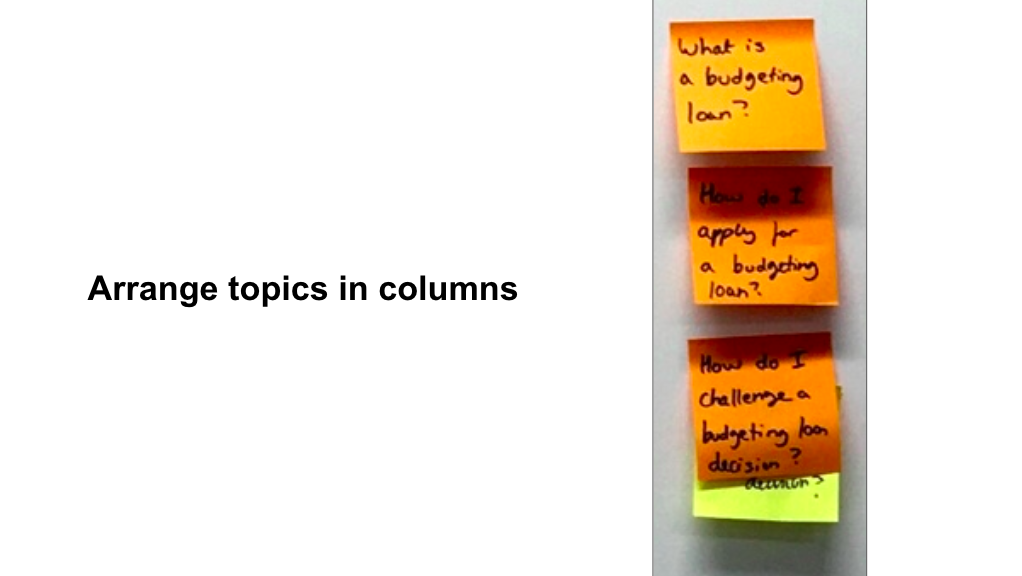 Arrange topics in columns
What is
a budgeting
loan?
How do I
apply for
a budgeting
loan?
How do I
challenge a
budgeting loan
decision?
decision?